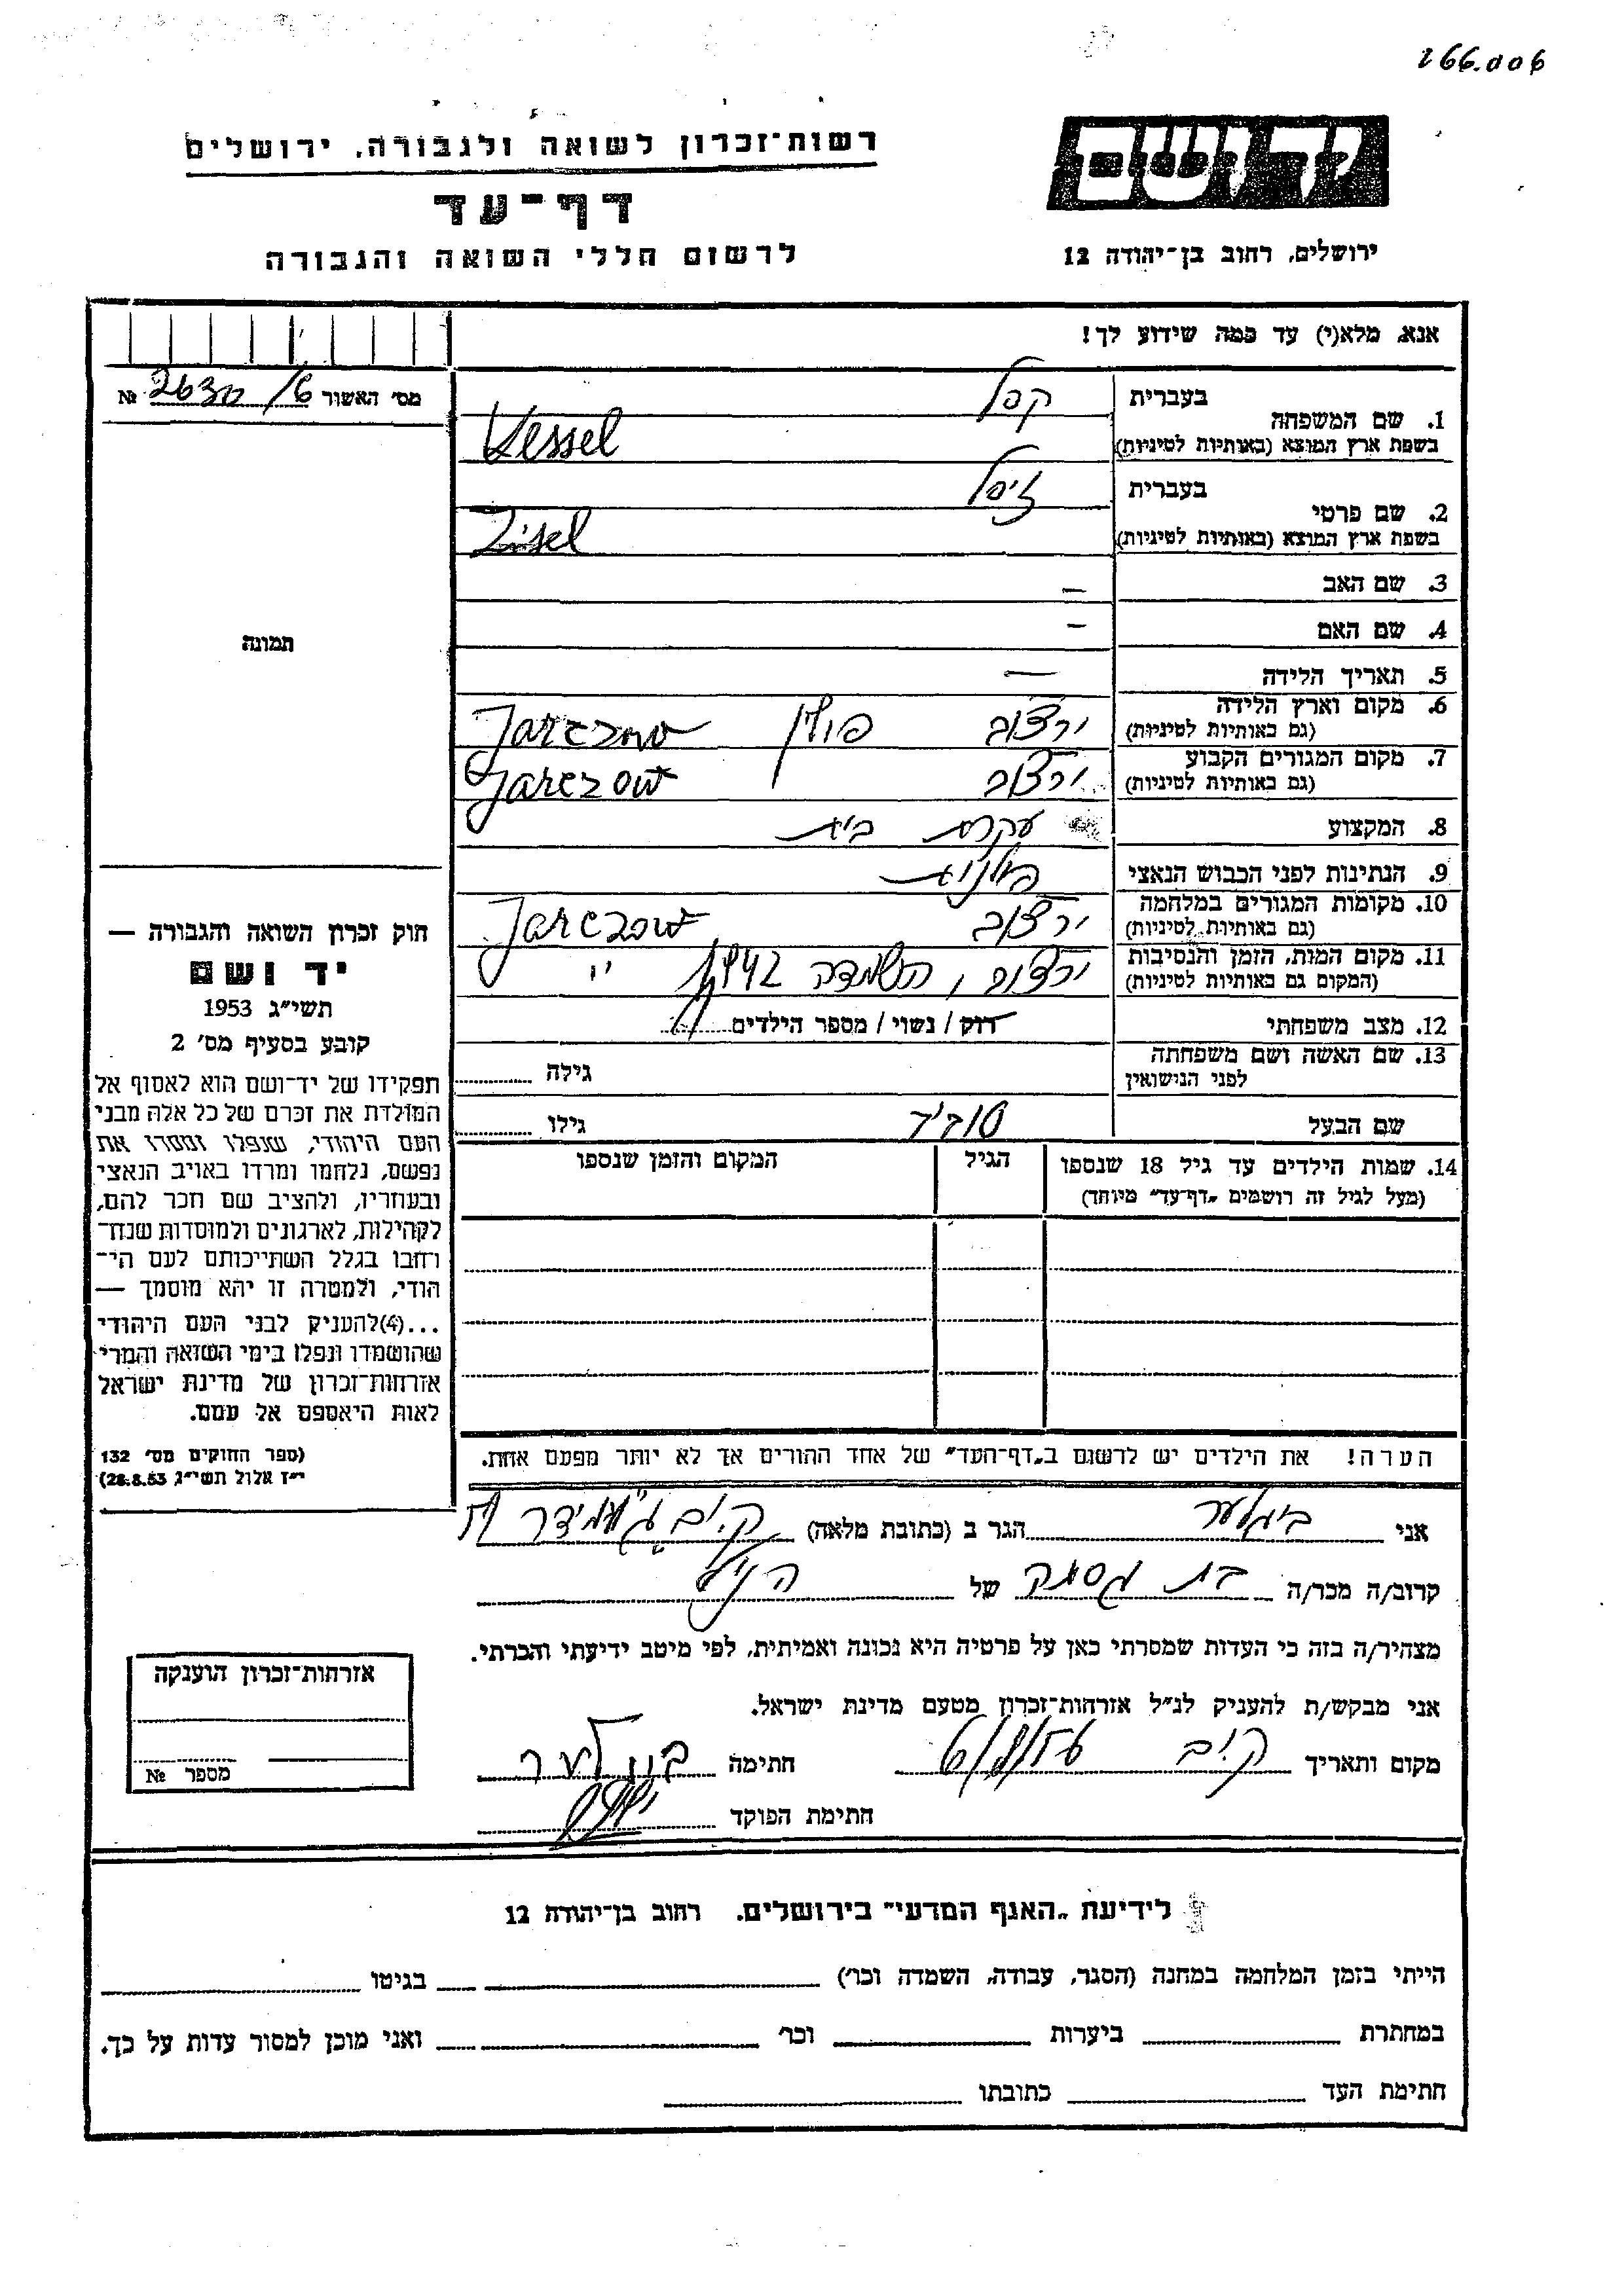 266.006
רשות־זכרון לשואה ולגבורה, ירושלים
דף־עד
לרשום חללי השואה והגבורה
יד ושם
ירושלים, רחוב בן־יהודה 12
אנא, מלא(י) עד כמה שידוע לך!
מס׳ האשור 2630/6 №
1. שם המשפחה
בעברית קסל
בשפת ארץ המוצא (באותיות לטיניות) Kessel
2. שם פרטי
בעברית זיסל
בשפת ארץ המוצא (באותיות לטיניות) Zisel
3. שם האב —
4. שם האם —
5. תאריך הלידה —
6. מקום וארץ הלידה
(גם באותיות לטיניות) ירצוב פולין Jarczow
7. מקום המגורים הקבוע
(גם באותיות לטיניות) ירצוב Jarczow
8. המקצוע עקרת בית
9. הנתינות לפני הכבוש הנאצי פולנית
10. מקומות המגורים במלחמה
(גם באותיות לטיניות) ירצוב Jarczow
11. מקום המות, הזמן והנסיבות
(המקום גם באותיות לטיניות) ירצוב, השמדה 1942 "
12. מצב משפחתי רוק / נשוי / מספר הילדים
13. שם האשה ושם משפחתה
לפני הנישואין
גילה
שם הבעל
גילו
14. שמות הילדים עד גיל 18 שנספו
(מעל לגיל זה רושמים „דף־עד״ מיוחד)
הגיל
המקום והזמן שנספו
הערה! את הילדים יש לרשום ב„דף־העד״ של אחד ההורים אך לא יותר מפעם אחת.
תמונה
חוק זכרון השואה והגבורה —
יד ושם
תשי״ג 1953
קובע בסעיף מס׳ 2
תפקידו של יד־ושם הוא לאסוף אל
המולדת את זכרם של כל אלה מבני
העם היהודי, שנפלו ומסרו את
נפשם, נלחמו ומרדו באויב הנאצי
ובעוזריו, ולהציב שם וזכר להם,
לקהילות, לארגונים ולמוסדות שנח־
רבו בגלל השתייכותם לעם הי־
הודי, ולמטרה זו יהא מוסמך —
...(4)להעניק לבני העם היהודי
שהושמדו ונפלו בימי השואה והמרי
אזרחות־זכרון של מדינת ישראל
לאות היאספם אל עמם.
(ספר החוקים מס׳ 132
י״ז אלול תשי״ג 28.8.53)
אני ביגלער הגר ב (כתובת מלאה) ק.ים
קרוב/ה מכר/ה של הנ״ל
מצהיר/ה בזה כי העדות שמסרתי כאן על פרטיה היא נכונה ואמיתית, לפי מיטב ידיעתי והכרתי.
אני מבקש/ת להעניק לנ״ל אזרחות־זכרון מטעם מדינת ישראל.
מקום ותאריך ק.ים חתימה
חתימת הפוקד
אזרחות־זכרון הוענקה
מספר №
לידיעת „האגף המדעי״ בירושלים, רחוב בן־יהודה 12
הייתי בזמן המלחמה במחנה (הסגר, עבודה, השמדה וכר׳) בגיטו
במחתרת ביערות וכר׳ ואני מוכן למסור עדות על כך.
חתימת העד כתובתו